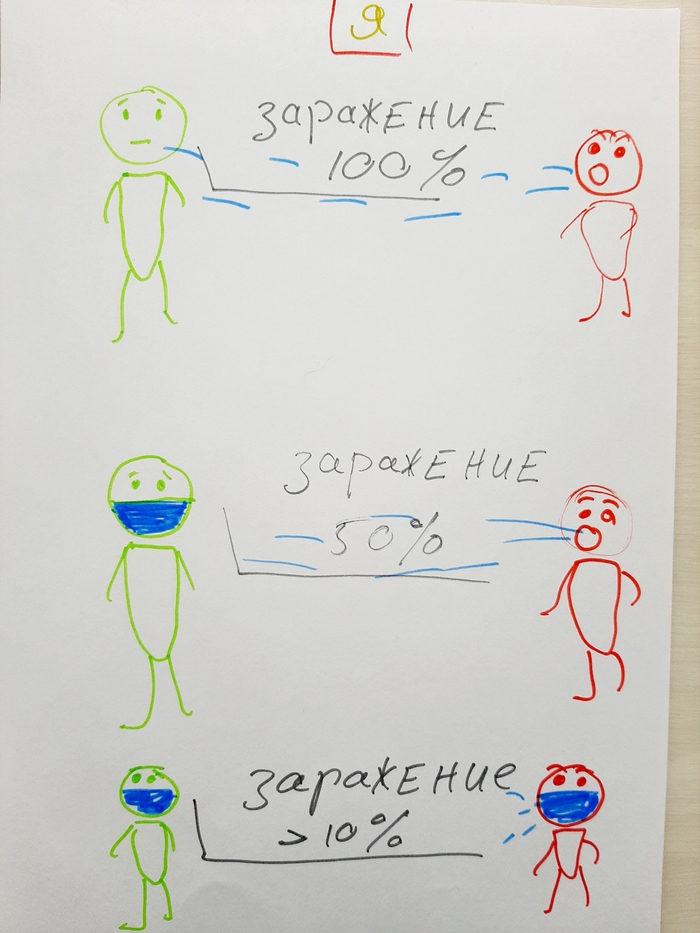 Я
заражение
100%
заражение
50%
заражение
>10%